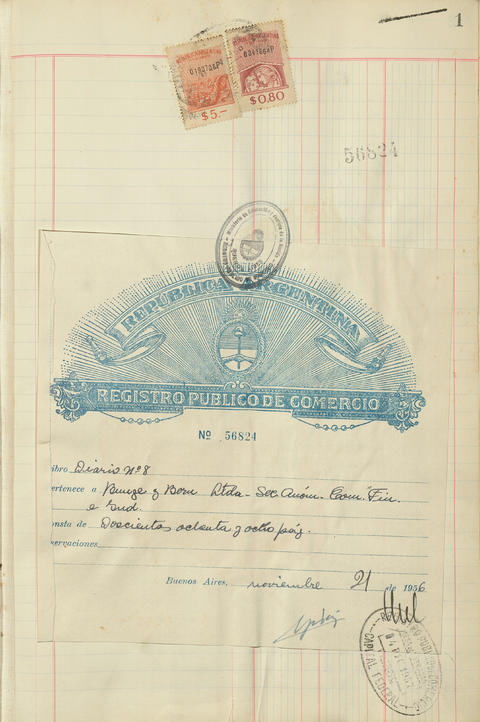 1
REPUBLICA ARGENTINA
$5.-
$0.80
56824
REPUBLICA ARGENTINA
REGISTRO PUBLICO DE COMERCIO
Nº 56824
ibro Diario Nº 8
ertenece a Bunge y Born Ltda - Soc. Anóm. Com. Fin.
e Ind.
onsta de Doscientos ochenta y ocho pág.
servaciones
Buenos Aires, noviembre 21 de 1956
CAPITAL FEDERAL